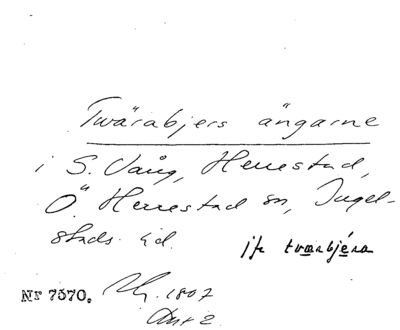 Twärabjers ängarne
i S. Vång, Herrestad,
Ö. Herrestad sn, Ingel-
stads hd.
jfr tvarabjéra
Nr 7570. 1807
Akt 2